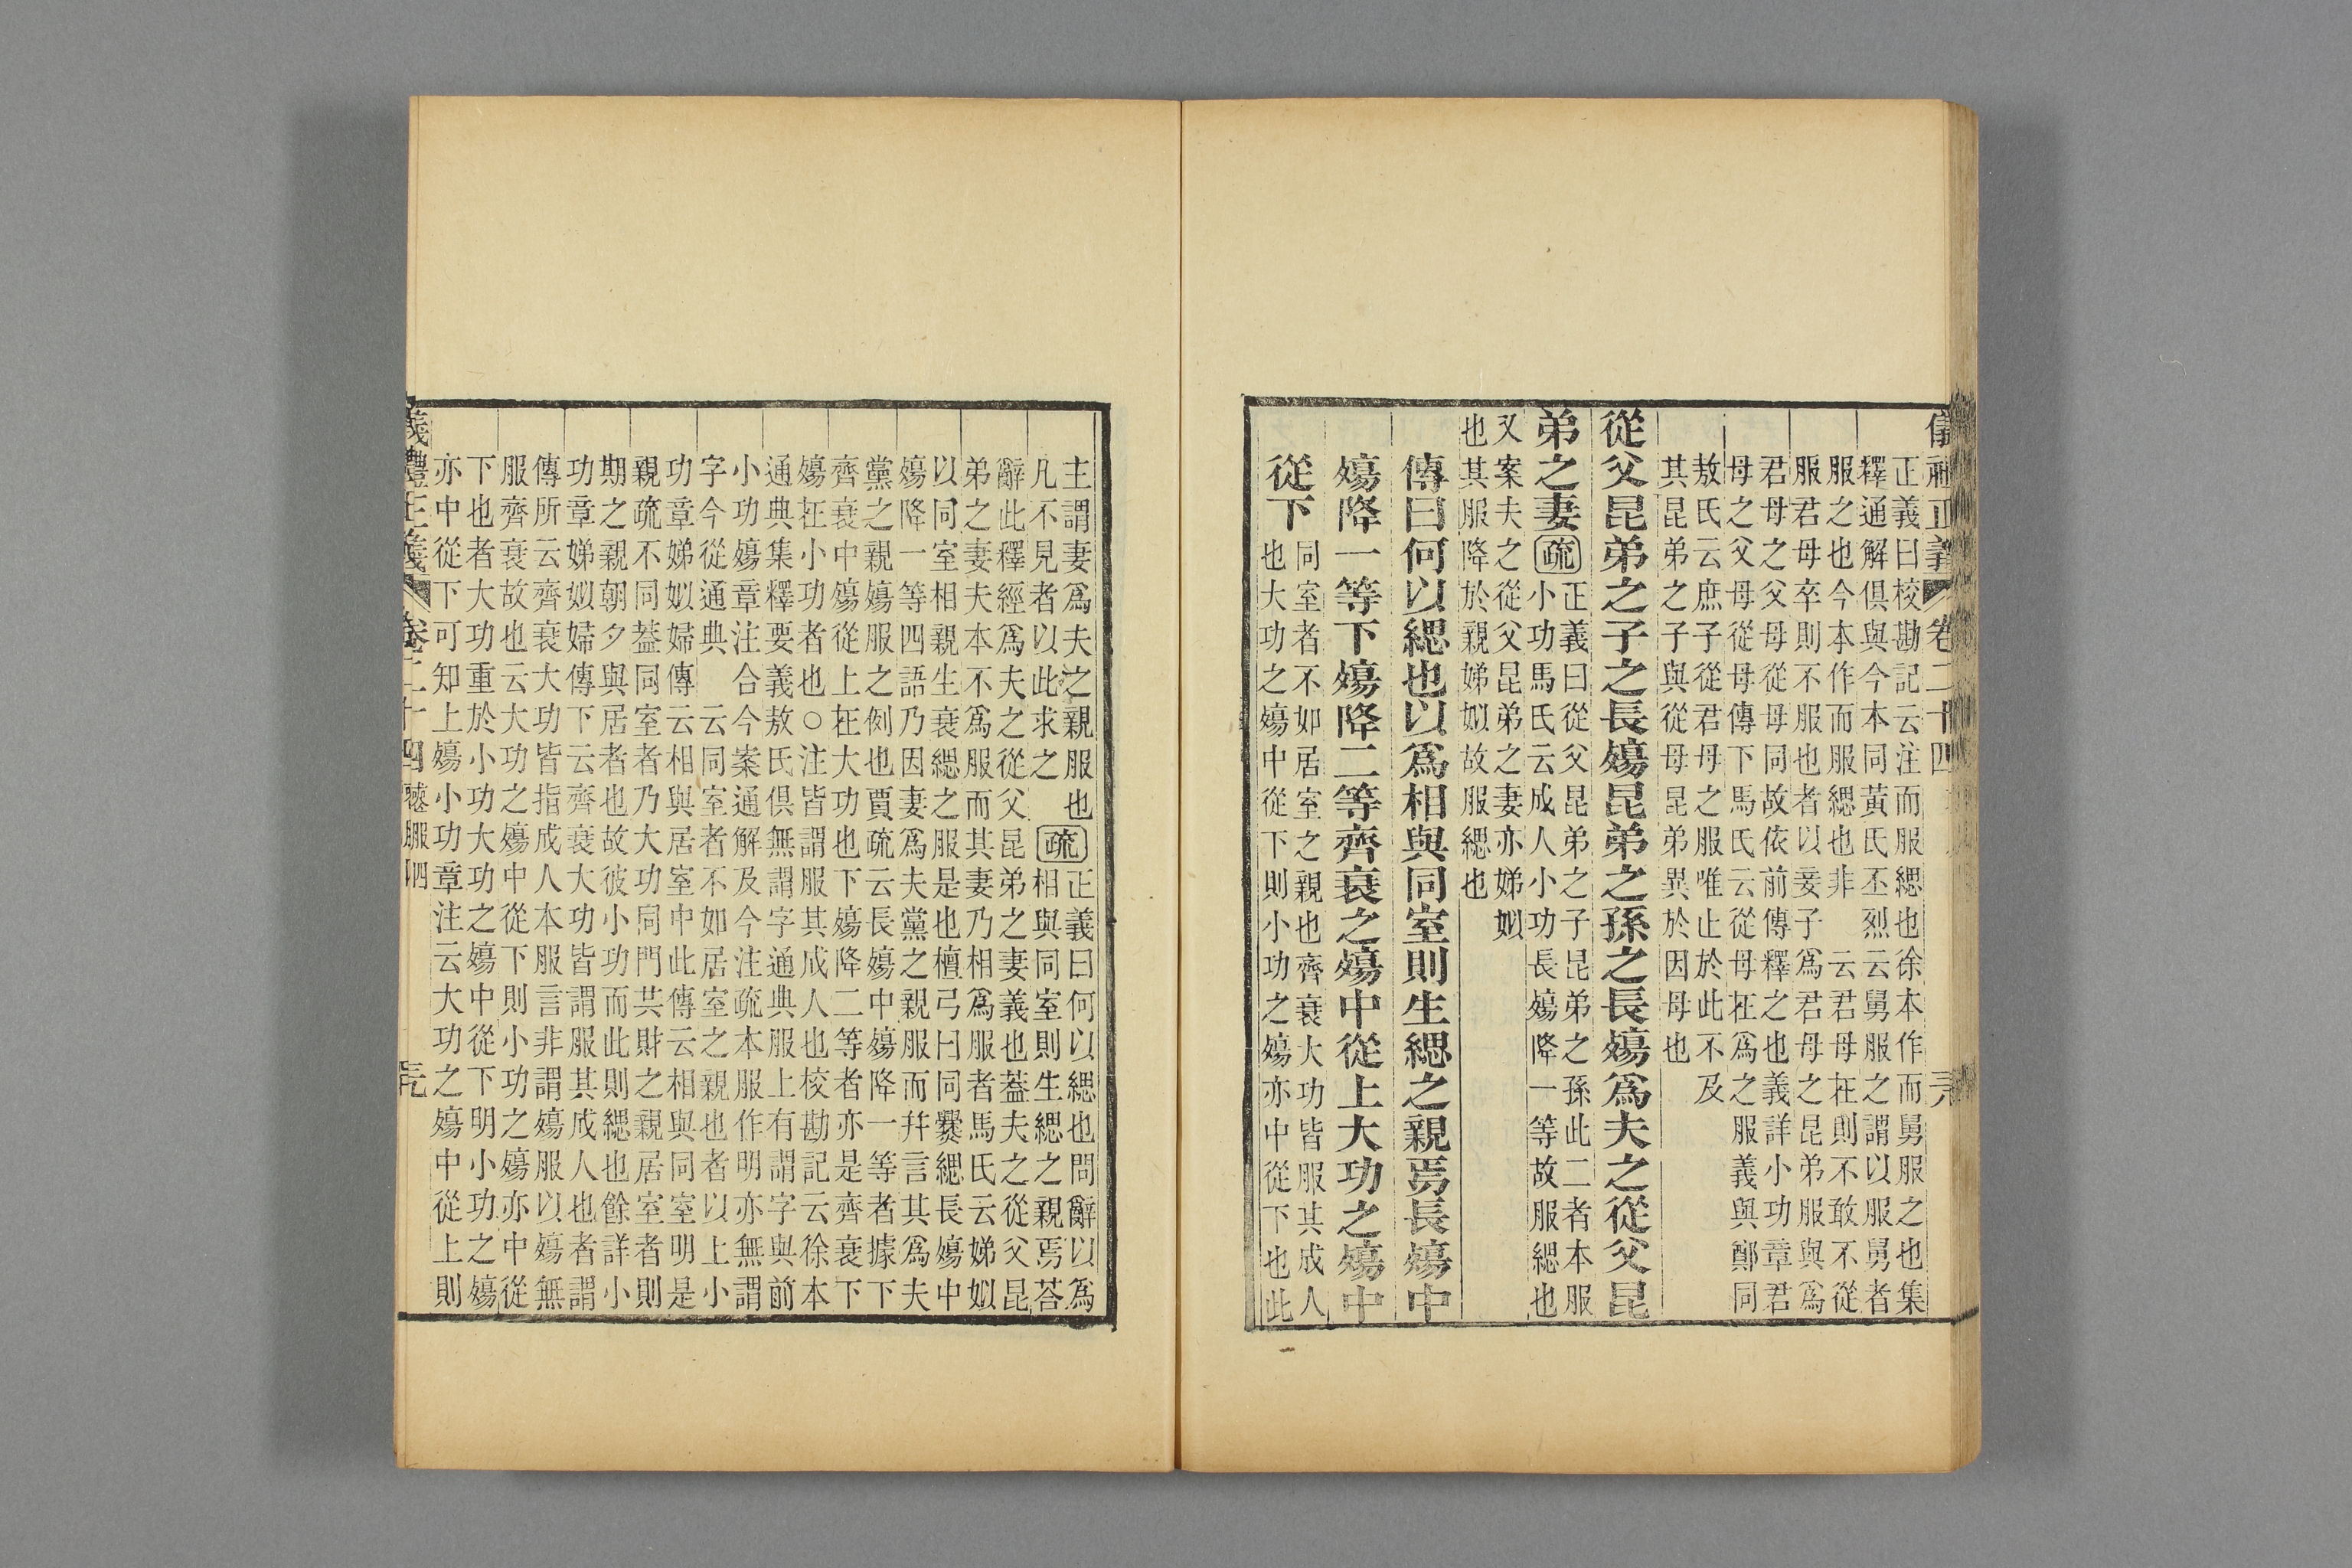 儀禮正義 卷二十四
正義曰校勘記云注而服緦也徐本作而舅服之也集
釋通解俱與今本同黃氏丕烈云舅服之謂以服舅者
服之也今本作而服緦也非 云君母在則不敢不從
服君母卒則不服也者以妾子爲君母之昆弟服與爲
君母之父母從母同故依前傳釋之也義詳小功章君
母之父母從母傳下馬氏云從母在爲之服義與鄭同
敖氏云庶子從君母之服唯止於此不及
其昆弟之子與從母昆弟異於因母也
從父昆弟之子之長殤昆弟之孫之長殤爲夫之從父昆
弟之妻疏正義曰從父昆弟之子昆弟之孫此二者本服
小功馬氏云成人小功長殤降一等故服緦也
又案夫之從父昆弟之妻亦娣姒
也其服降於親娣姒故服緦也
傳曰何以緦也以爲相與同室則生緦之親焉長殤中
殤降一等下殤降二等齊衰之殤中從上大功之殤中
從下
同室者不如居室之親也齊衰大功皆服其成人
也大功之殤中從下則小功之殤亦中從下也此
主謂妻爲夫之親服也疏正義曰何以緦也問辭以爲
凡不見者以此求之 相與同室則生緦之親焉荅
辭此釋經爲夫之從父昆弟之妻義也蓋夫之從父昆
弟之妻夫本不爲服而其妻乃相爲服者馬氏云娣姒
以同室相親生衰緦之服是也檀弓曰同爨緦長殤中
殤降一等四語乃因妻爲夫黨之親服而幷言其爲夫
黨之親殤服之例也賈疏云長殤中殤降一等者據下
齊衰中殤從上在大功也下殤降二等者亦是齊衰下
殤在小功者也○注皆謂服其成人也校勘記云徐本
通典集釋要義敖氏俱無謂字通典服上有謂字與前
小功殤章注合今案通解及今注疏本服作明亦無謂
字今從通典 云同室者不如居室之親也者以上小
功章娣姒婦傳云相與居室中此傳云相與同室明是
親疏不同蓋同室者乃大功同門共財之親居室者則
期之親朝夕與居者也故彼小功而此則緦也餘詳小
功章娣姒婦傳下云齊衰大功皆謂服其成人也者謂
傳所云齊衰大功皆指成人本服言非謂殤服以殤無
服齊衰故也云大功之殤中從下則小功之殤亦中從
下也者大功重於小功大功之殤中從下明小功之殤
亦中從下可知上殤小功章注云大功之殤中從上則
儀禮正義 卷二十四 喪服四